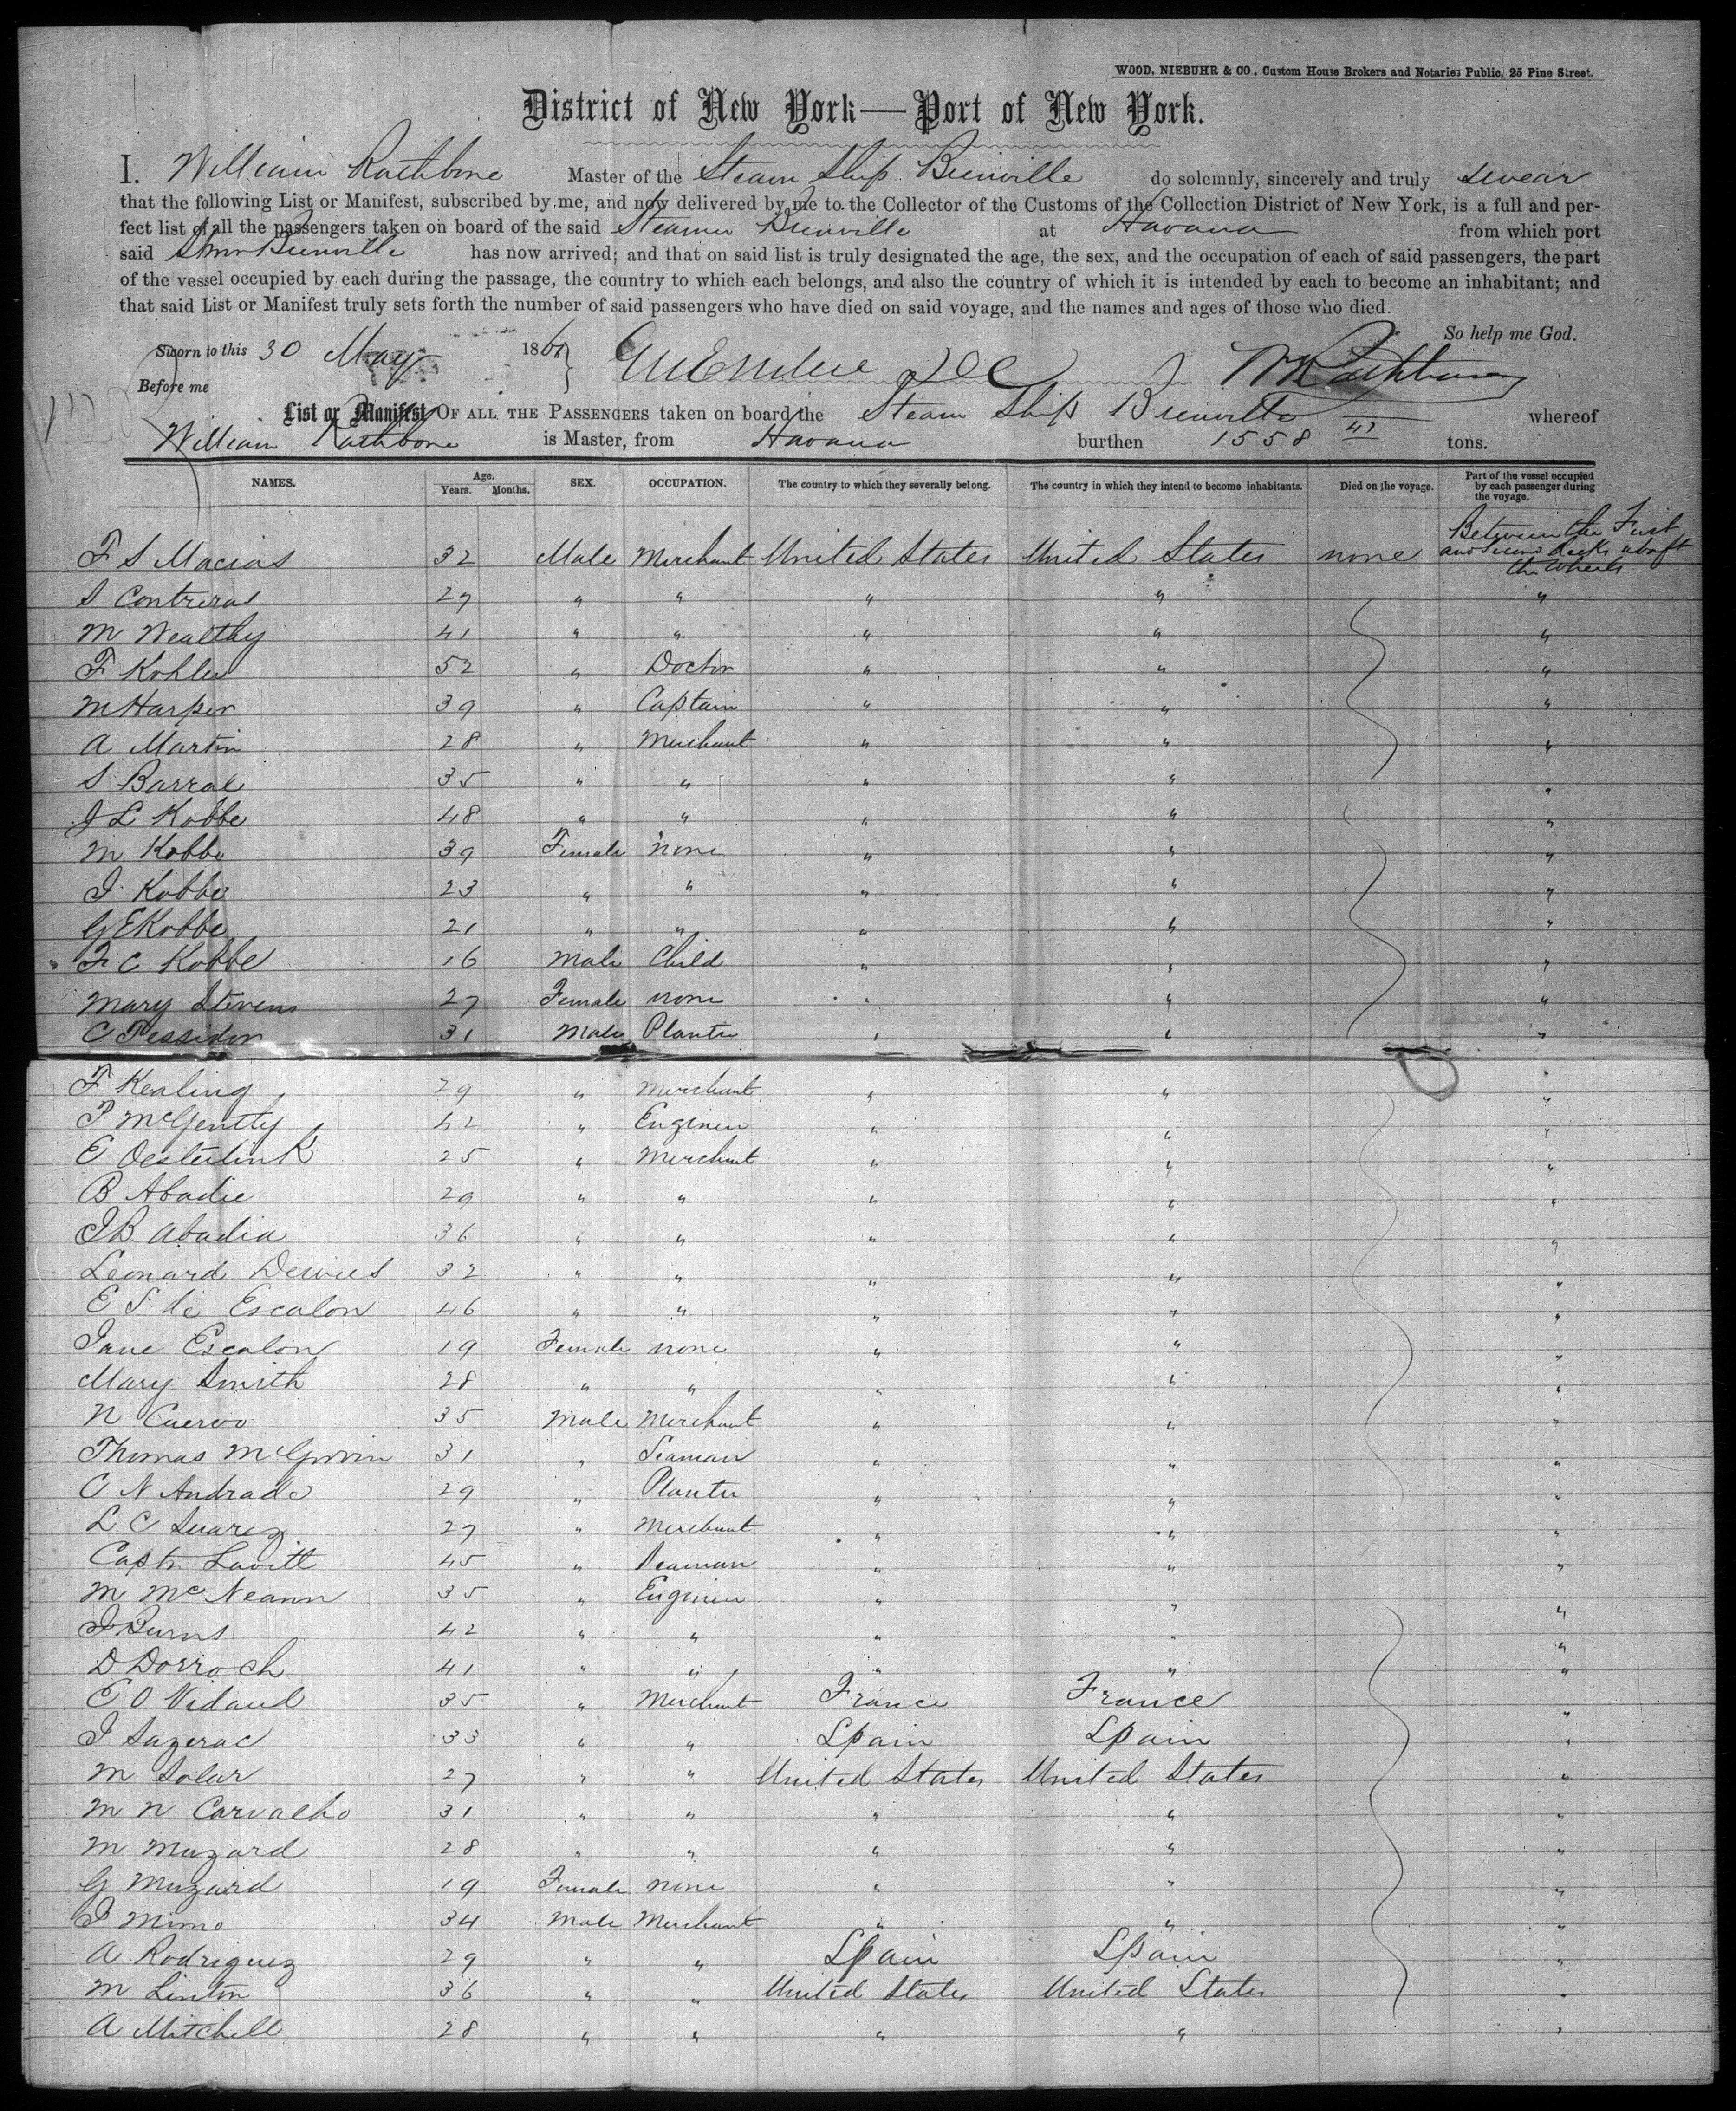 WOOD, NIEBUHR & CO., Custom House Brokers and Notaries Public, 25 Pine Street.
District of New York—Port of New York.
I, William Rathbone Master of the Steam Ship Bienville do solemnly, sincerely and truly swear
that the following List or Manifest, subscribed by me, and now delivered by me to the Collector of the Customs of the Collection District of New York, is a full and per-
fect list of all the passengers taken on board of the said Steamer Bienville at Havana from which port
said Stmr Bienville has now arrived; and that on said list is truly designated the age, the sex, and the occupation of each of said passengers, the part
of the vessel occupied by each during the passage, the country to which each belongs, and also the country of which it is intended by each to become an inhabitant; and
that said List or Manifest truly sets forth the number of said passengers who have died on said voyage, and the names and ages of those who died.
So help me God.
Sworn to this 30 May 186
Before me
W Rathbone
List or Manifest OF ALL THE PASSENGERS taken on board the Steam Ship Bienville whereof
William Rathbone is Master, from Havana burthen 1558 tons.
NAMES. Age. Years. Months. SEX. OCCUPATION. The country to which they severally belong. The country in which they intend to become inhabitants. Died on the voyage. Part of the vessel occupied by each passenger during the voyage.
F S Macias 32 Male Merchant United States United States none Between the First and Second decks abaft the wheels
S Contreras 27 " " " " "
M Wealthy 41 " " " " "
F Kohler 52 " Doctor " " "
M Harper 39 " Captain " " "
A Martin 28 " Merchant " " "
S Barral 35 " " " " "
J L Kobbe 48 " " " " "
M Kobbe 39 Female none " " "
I Kobbe 23 " " " " "
G E Kobbe 21 " " " " "
F C Kobbe 16 Male Child " " "
Mary Stevens 27 Female none " " "
C Tessidor 31 Male Planter " " "
F Kealing 29 " Merchant " " "
P McGentty 42 " Engineer " " "
E Oesterlink 25 " Merchant " " "
B Abadie 29 " " " " "
J B Abadia 36 " " " " "
Leonard 32 " " " " "
E S de Escalon 46 " " " " "
Jane Escalon 19 Female none " " "
Mary Smith 28 " " " " "
N Cuervo 35 Male Merchant " " "
Thomas McGowin 31 " Seaman " " "
C N Andrade 29 " Planter " " "
L C Suarez 27 " Merchant " " "
Captn Lovitt 45 " Seaman " " "
M McNeann 35 " Engineer " " "
J Burns 42 " " " " "
D Dorroch 41 " " " " "
E O Vidaud 35 " Merchant France France "
J Sazerac 33 " " Spain Spain "
M Solar 27 " " United States United States "
M N Carvalho 31 " " " " "
M Muzard 28 " " " " "
G Muzard 19 Female none " " "
J Mimo 34 Male Merchant " " "
A Rodriguez 29 " " Spain Spain "
M Linton 36 " " United States United States "
A Mitchell 28 " " " " "